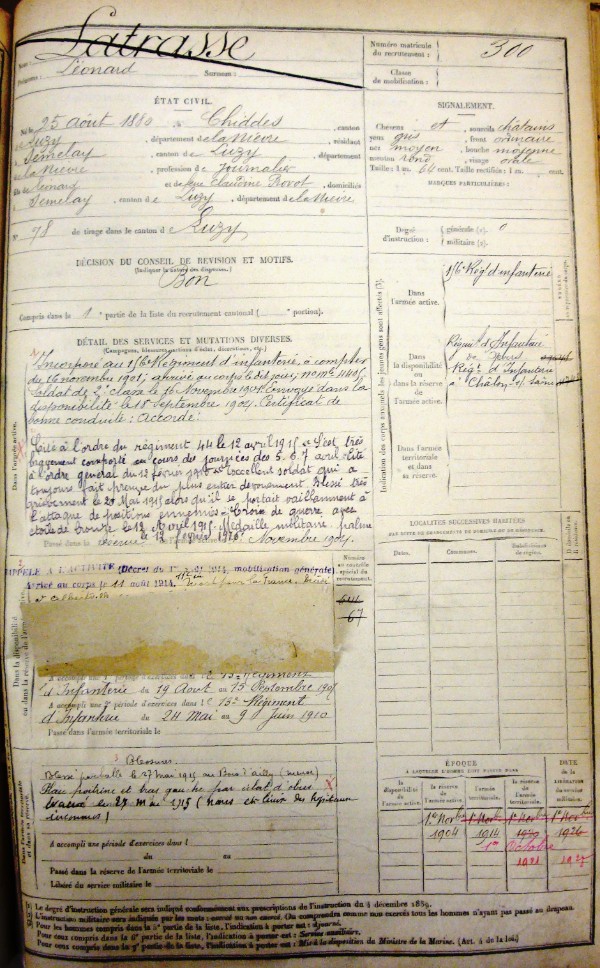 Latrasse
Nom :
Prénoms : Léonard Surnom :
Numéro matricule
du recrutement :
300
Classe
de mobilisation :
ÉTAT CIVIL.
Né le 25 août 1880 à Chiddes, canton
de Luzy, département de la Nièvre, résidant
à Sémelay, canton de Luzy, département
de la Nièvre, profession de journalier
fils de Léonard et de Claudine, domiciliés
à Semelay, canton de Luzy, département de la Nièvre
N° 78 de tirage dans le canton de Luzy
SIGNALEMENT.
Cheveux et sourcils châtains
yeux gris, front ordinaire
nez moyen, bouche moyenne
menton rond, visage ovale
Taille : 1 m. 64 cent. Taille rectifiée : 1 m. cent.
MARQUES PARTICULIÈRES :
Degré
d'instruction :
générale (1). 0
militaire (2).
DÉCISION DU CONSEIL DE REVISION ET MOTIFS.
(Indiquer la nature des dispenses.)
Bon
Compris dans la 1e partie de la liste du recrutement cantonal ( portion).
DÉTAIL DES SERVICES ET MUTATIONS DIVERSES.
(Campagnes, blessures, actions d'éclat, décorations, etc.)
Incorporé au 156e Régiment d'infanterie, à compter
du 16 novembre 1901; arrivé au corps le dit jour;
Soldat de 2e classe le 16 Novembre 1901. Envoyé dans la
disponibilité le 18 Septembre 1904. Certificat de
bonne conduite : Accordé.
Cité à l'ordre du régiment 44 le 12 avril 1915 s'est très
bravement comporté au cours de journées des 5. 6. 7 avril. Cité
à l'ordre général du 12 février excellent soldat qui a
toujours fait preuve du plus entier dévouement. Blessé très
grièvement le 27 Mai 1915 alors qu'il se portait vaillamment à
l'attaque de positions ennemies. Croix de guerre avec
étoile de bronze le 12 Avril 1915. Médaille militaire palme
le 12 février Novembre 1904.
Dans l'armée active.
RAPPELÉ A L'ACTIVITÉ (Décret du 1er août 1914, mobilisation générale)
Arrivé au corps le 11 août 1914.
Dans la disponibilité
ou dans la réserve de l'armée active.
Numéro
au contrôle
spécial du
recrutement.
67
Régiment
d'Infanterie du 19 Août au 15 Septembre 1907
A accompli une 2e période d'exercices dans le Régiment
d'Infanterie du 24 Mai au 9 Juin 1910
Passé dans l'armée territoriale le
Blessures
Blessé par balle le 27 mai 1915 au Bois d'Ailly (meuse)
Plaie poitrine et bras gauche par éclat d'obus
Evacué le 27 mai 1915 (dates et lieux des hôpitaux
inconnus)
Dans l'armée territoriale
et dans sa réserve.
A accompli une période d'exercices dans l
du au
Passé dans la réserve de l'armée territoriale le
Libéré du service militaire le
Indication des corps auxquels les jeunes gens sont affectés (3).
Dans
l'armée active.
156e Régt d'infanterie
Dans
la disponibilité
ou dans la réserve
de l'armée active.
Régiment d'Infanterie
Régt d'Infanterie
à Chalon s/ Saône
Dans l'armée
territoriale
et dans
sa réserve.
LOCALITÉS SUCCESSIVES HABITÉES
Dates.
Communes.
Subdivisions
de région.
ÉPOQUE
À LAQUELLE L'HOMME DOIT PASSER DANS
DATE
de la
LIBÉRATION
du service
militaire.
la
disponibilité
de l'armée
active.
la réserve
de
l'armée active.
l'armée
territoriale.
la réserve
de
l'armée
territoriale.
1er Novbre 1er Novbre 1er Novbre 1er Novbre
1904 1914 1920 1926
1er Octobre
1921 1927
(1) Le degré d'instruction générale sera indiqué conformément aux prescriptions de l'instruction du 4 décembre 1889.
(2) L'instruction militaire sera indiquée par les mots : exercé ou non exercé. On comprendra comme non exercés tous les hommes n'ayant pas passé au drapeau.
(3) Pour les hommes compris dans la 5e partie de la liste, l'indication à porter est : Ajourné.
Pour ceux compris dans la 6e partie de la liste, l'indication à porter est : Service auxiliaire.
Pour ceux compris dans la 7e partie de la liste, l'indication à porter est : Mis à la disposition du Ministre de la Marine. (Art. 4 de la loi.)